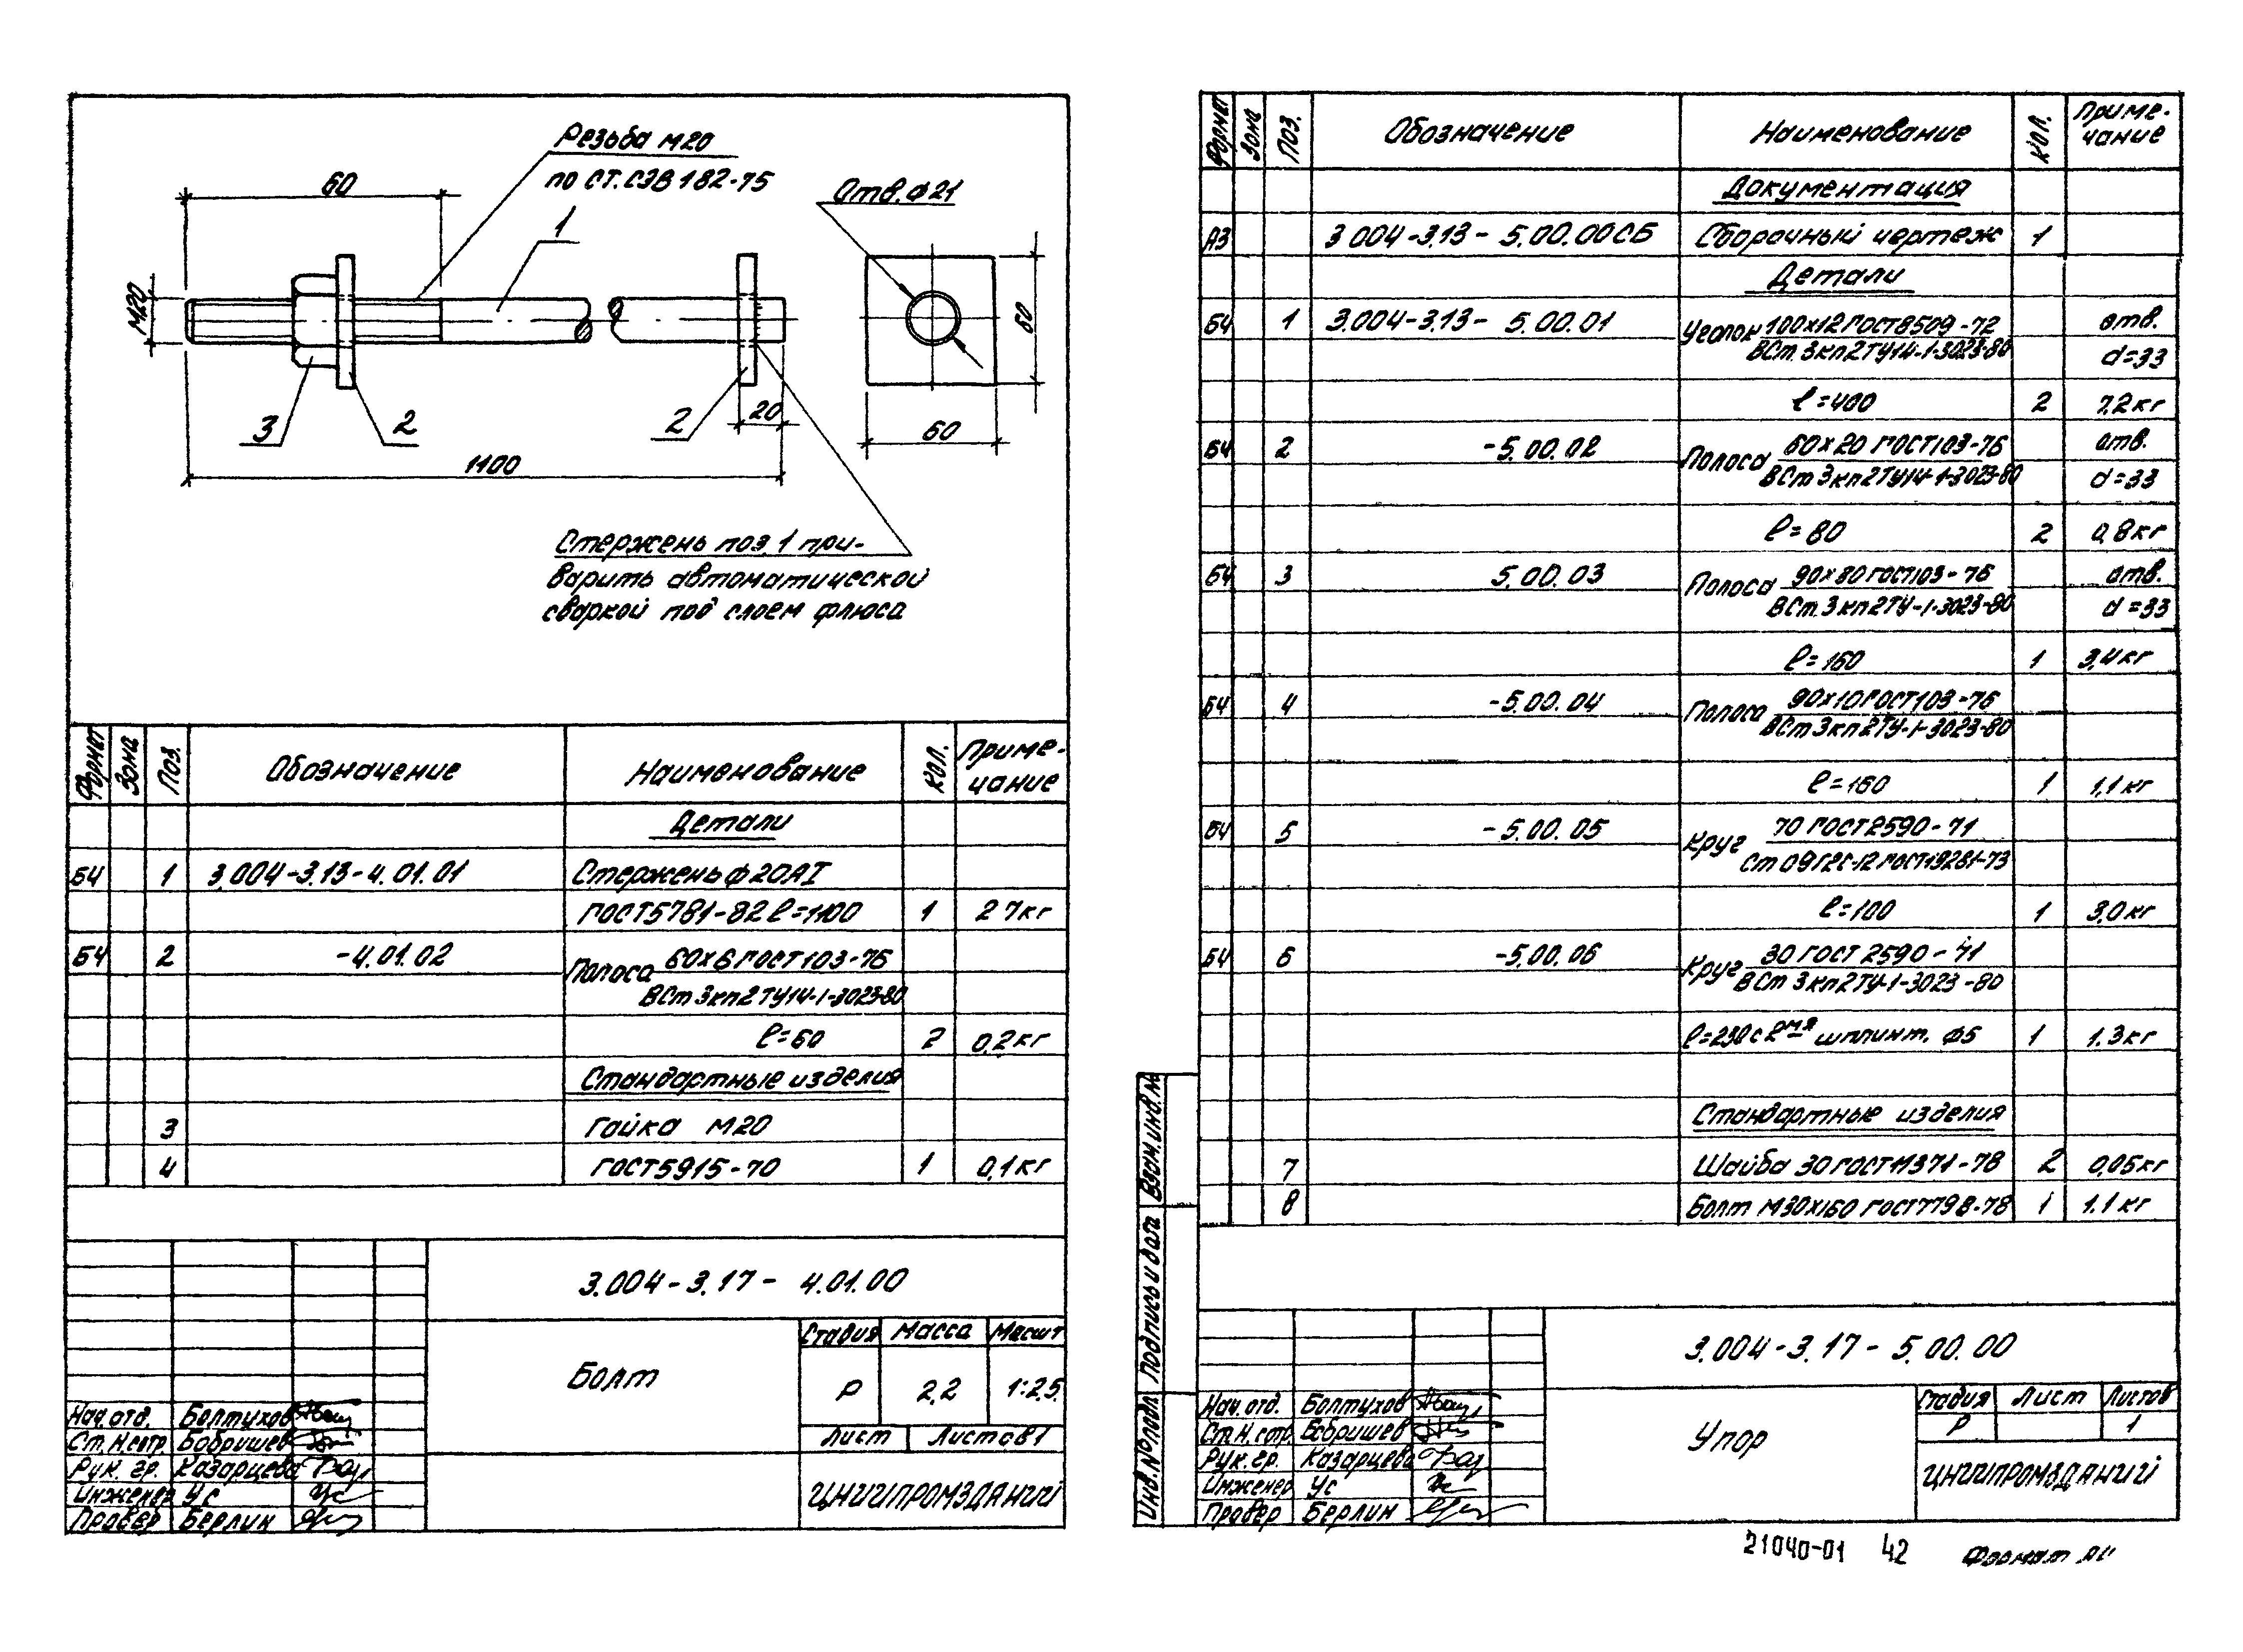 Резьба М20
по СТ.СЭВ 182-75
60
1
Отв. ф21
М20
3
2
2
20
60
60
1100
Стержень поз 1 при-
варить автоматической
сваркой под слоем флюса
Формат Зона Поз. Обозначение Наименование Кол. Приме-
чание
Детали
Б4 1 3.004-3.13-4.01.01 Стержень ф20АI
ГОСТ5781-82 ℓ=1100 1 2 7кг
Б4 2 -4.01.02 Полоса 60х6 ГОСТ103-76
ВСт 3кп2 ТУ14-1-3023-80
ℓ=60 2 0,2кг
Стандартные изделия
3 Гайка М20
4 ГОСТ5915-70 1 0,1кг
3.004-3.17- 4.01.00
Болт
Стадия Масса Масшт
Р 2,2 1:2,5
Лист Листов 1
ЦНИИПРОМЗДАНИЙ
Нач. отд. Болтухов
Ст. Н. сотр. Бобришев
Рук. гр. Казарцева
Инженер Ус
Провер Берлин
Формат Зона Поз. Обозначение Наименование Кол. Приме-
чание
Документация
А3 3.004-3.13- 5.00.00СБ Сборочный чертеж 1
Детали
Б4 1 3.004-3.13- 5.00.01 Уголок 100х12 ГОСТ8509-72 отв.
ВСт. 3кп2 ТУ14-1-3023-80 d=33
ℓ=400 2 7.2кг
Б4 2 -5.00.02 Полоса 60х20 ГОСТ103-76 отв.
ВСт 3кп2 ТУ14-1-3023-80 d=33
ℓ=80 2 0,8кг
Б4 3 5.00.03 Полоса 90х80 ГОСТ103-76 отв.
ВСт. 3кп2 ТУ-1-3023-80 d=33
ℓ=160 1 3,4кг
Б4 4 -5.00.04 Полоса 90х10 ГОСТ103-76
ВСт 3кп2 ТУ-1-3023-80
ℓ=160 1 1,1кг
Б4 5 -5.00.05 Круг 70 ГОСТ2590-71
Ст 09Г2С-12 ГОСТ19281-73
ℓ=100 1 3,0кг
Б4 6 -5.00.06 Круг 30 ГОСТ 2590-71
ВСт 3кп2 ТУ-1-3023-80
ℓ=230 с 2мя шплинт. ф5 1 1.3кг
Стандартные изделия
7 Шайба 30 ГОСТ11371-78 2 0,05кг
8 Болт М30х160 ГОСТ7798-78 1 1.1кг
Взам. инв. №
Подпись и дата
Инв. № подл.
3.004-3.17- 5.00.00
Упор
Стадия Лист Листов
Р 1
ЦНИИПРОМЗДАНИЙ
Нач. отд. Болтухов
Ст. Н. сотр. Бобришев
Рук. гр. Казарцева
Инженер Ус
Провер Берлин
21040-01 42 Формат